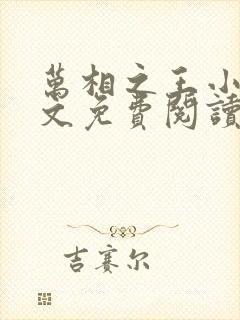 萬相之王小
文免費閱讀
吉賽尔